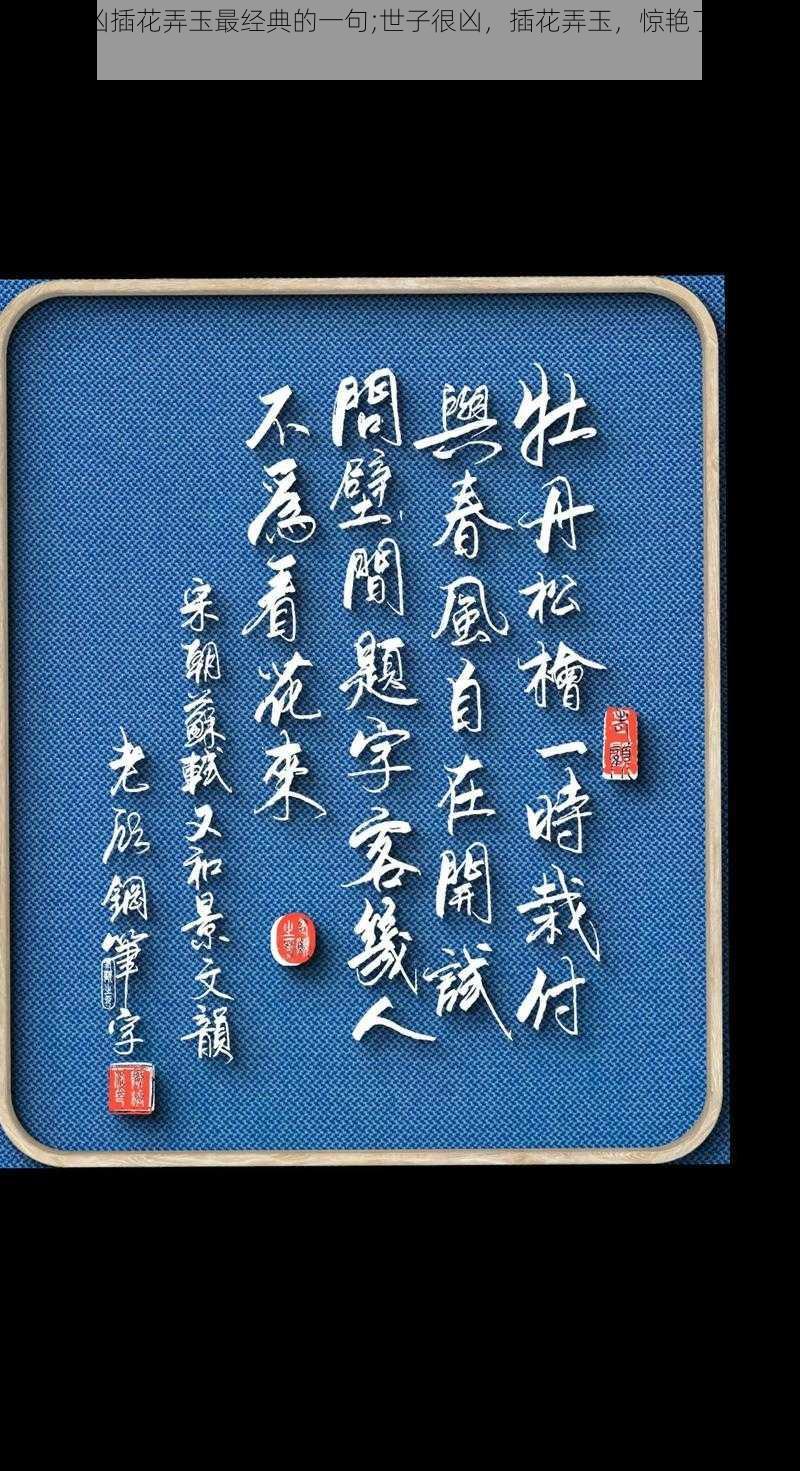 凶插花弄玉最经典的一句;世子很凶，插花弄玉，惊艳了
牡丹松檜一時栽付
與春風自在開試
問壁間題字客幾人
不爲看花來
宋朝蘇軾又和景文韻
老顧鋼筆字